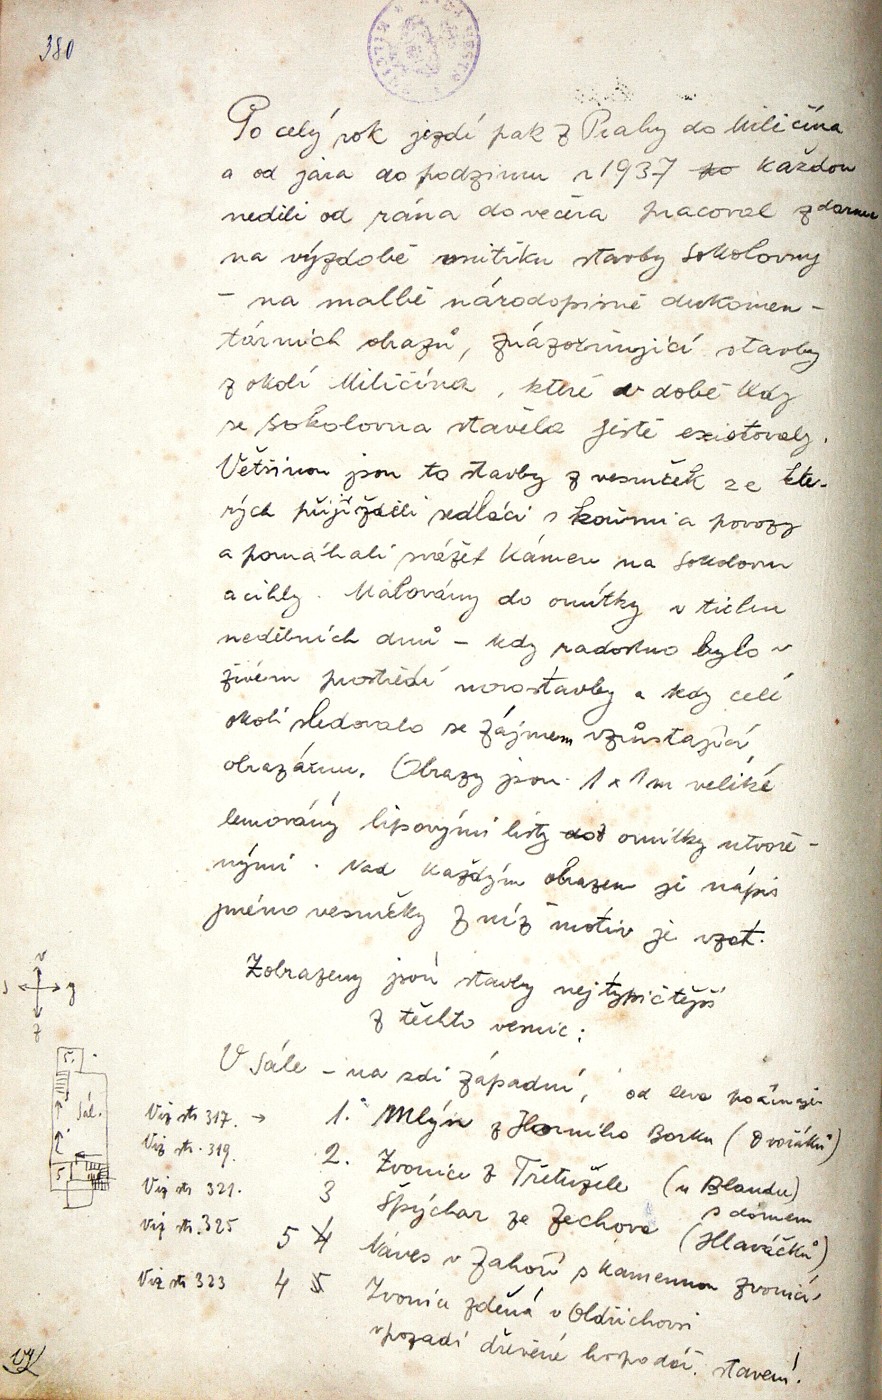 380
Po celý rok jezdí pak z Prahy do Miličína
a od jara do podzimu r 1937 po každou
neděli od rána do večera pracoval zdarma
na výzdobě vnitřku stavby Sokolovny
– na malbě národopisně dukomen-
tárních obrazů, znázorňující stavby
z okolí Miličína, které v době kdy
se Sokolovna stavěla ještě existovaly.
Většinou jsou to stavby z vesniček ze kte-
rých přijížděli sedláci s koňmi a povozy
a pomáhali svážet kámen na Sokolovnu
a cihly. Malovány do omítky v tichu
nedělních dnů – kdy radostno bylo v
živém prostředí novostavby a kdy celé
okolí sledovalo se zájmem vzrůstající
obrazárnu. Obrazy jsou 1 x 1 m veliké
lemovány lipovými listy do z omítky utvoře-
nými. Nad každým obrazem je nápis
jméno vesničky z níž motiv je vzat.
Zobrazeny jsou stavby nejtypičtější
z těchto vesnic:
V Sále – na zdi západní, od leva počínaje
Viz str 317. → 1. Mlýn z Horního Borku (Dvořáků)
Viz str. 319. 2. Zvonice z Třetužele (u Blandů)
Viz str 321. 3 Špýchar ze Zechova s domem (Hlaváčků)
Viz str. 325 5 4 Náves v Zahoří s kamennou zvonicí
Viz str 323 4 5 Zvonice zděná v Oldřichovci
v pozadí dřevěné hospodář. stavení.
v
s j
z
5.
Sál.
5.